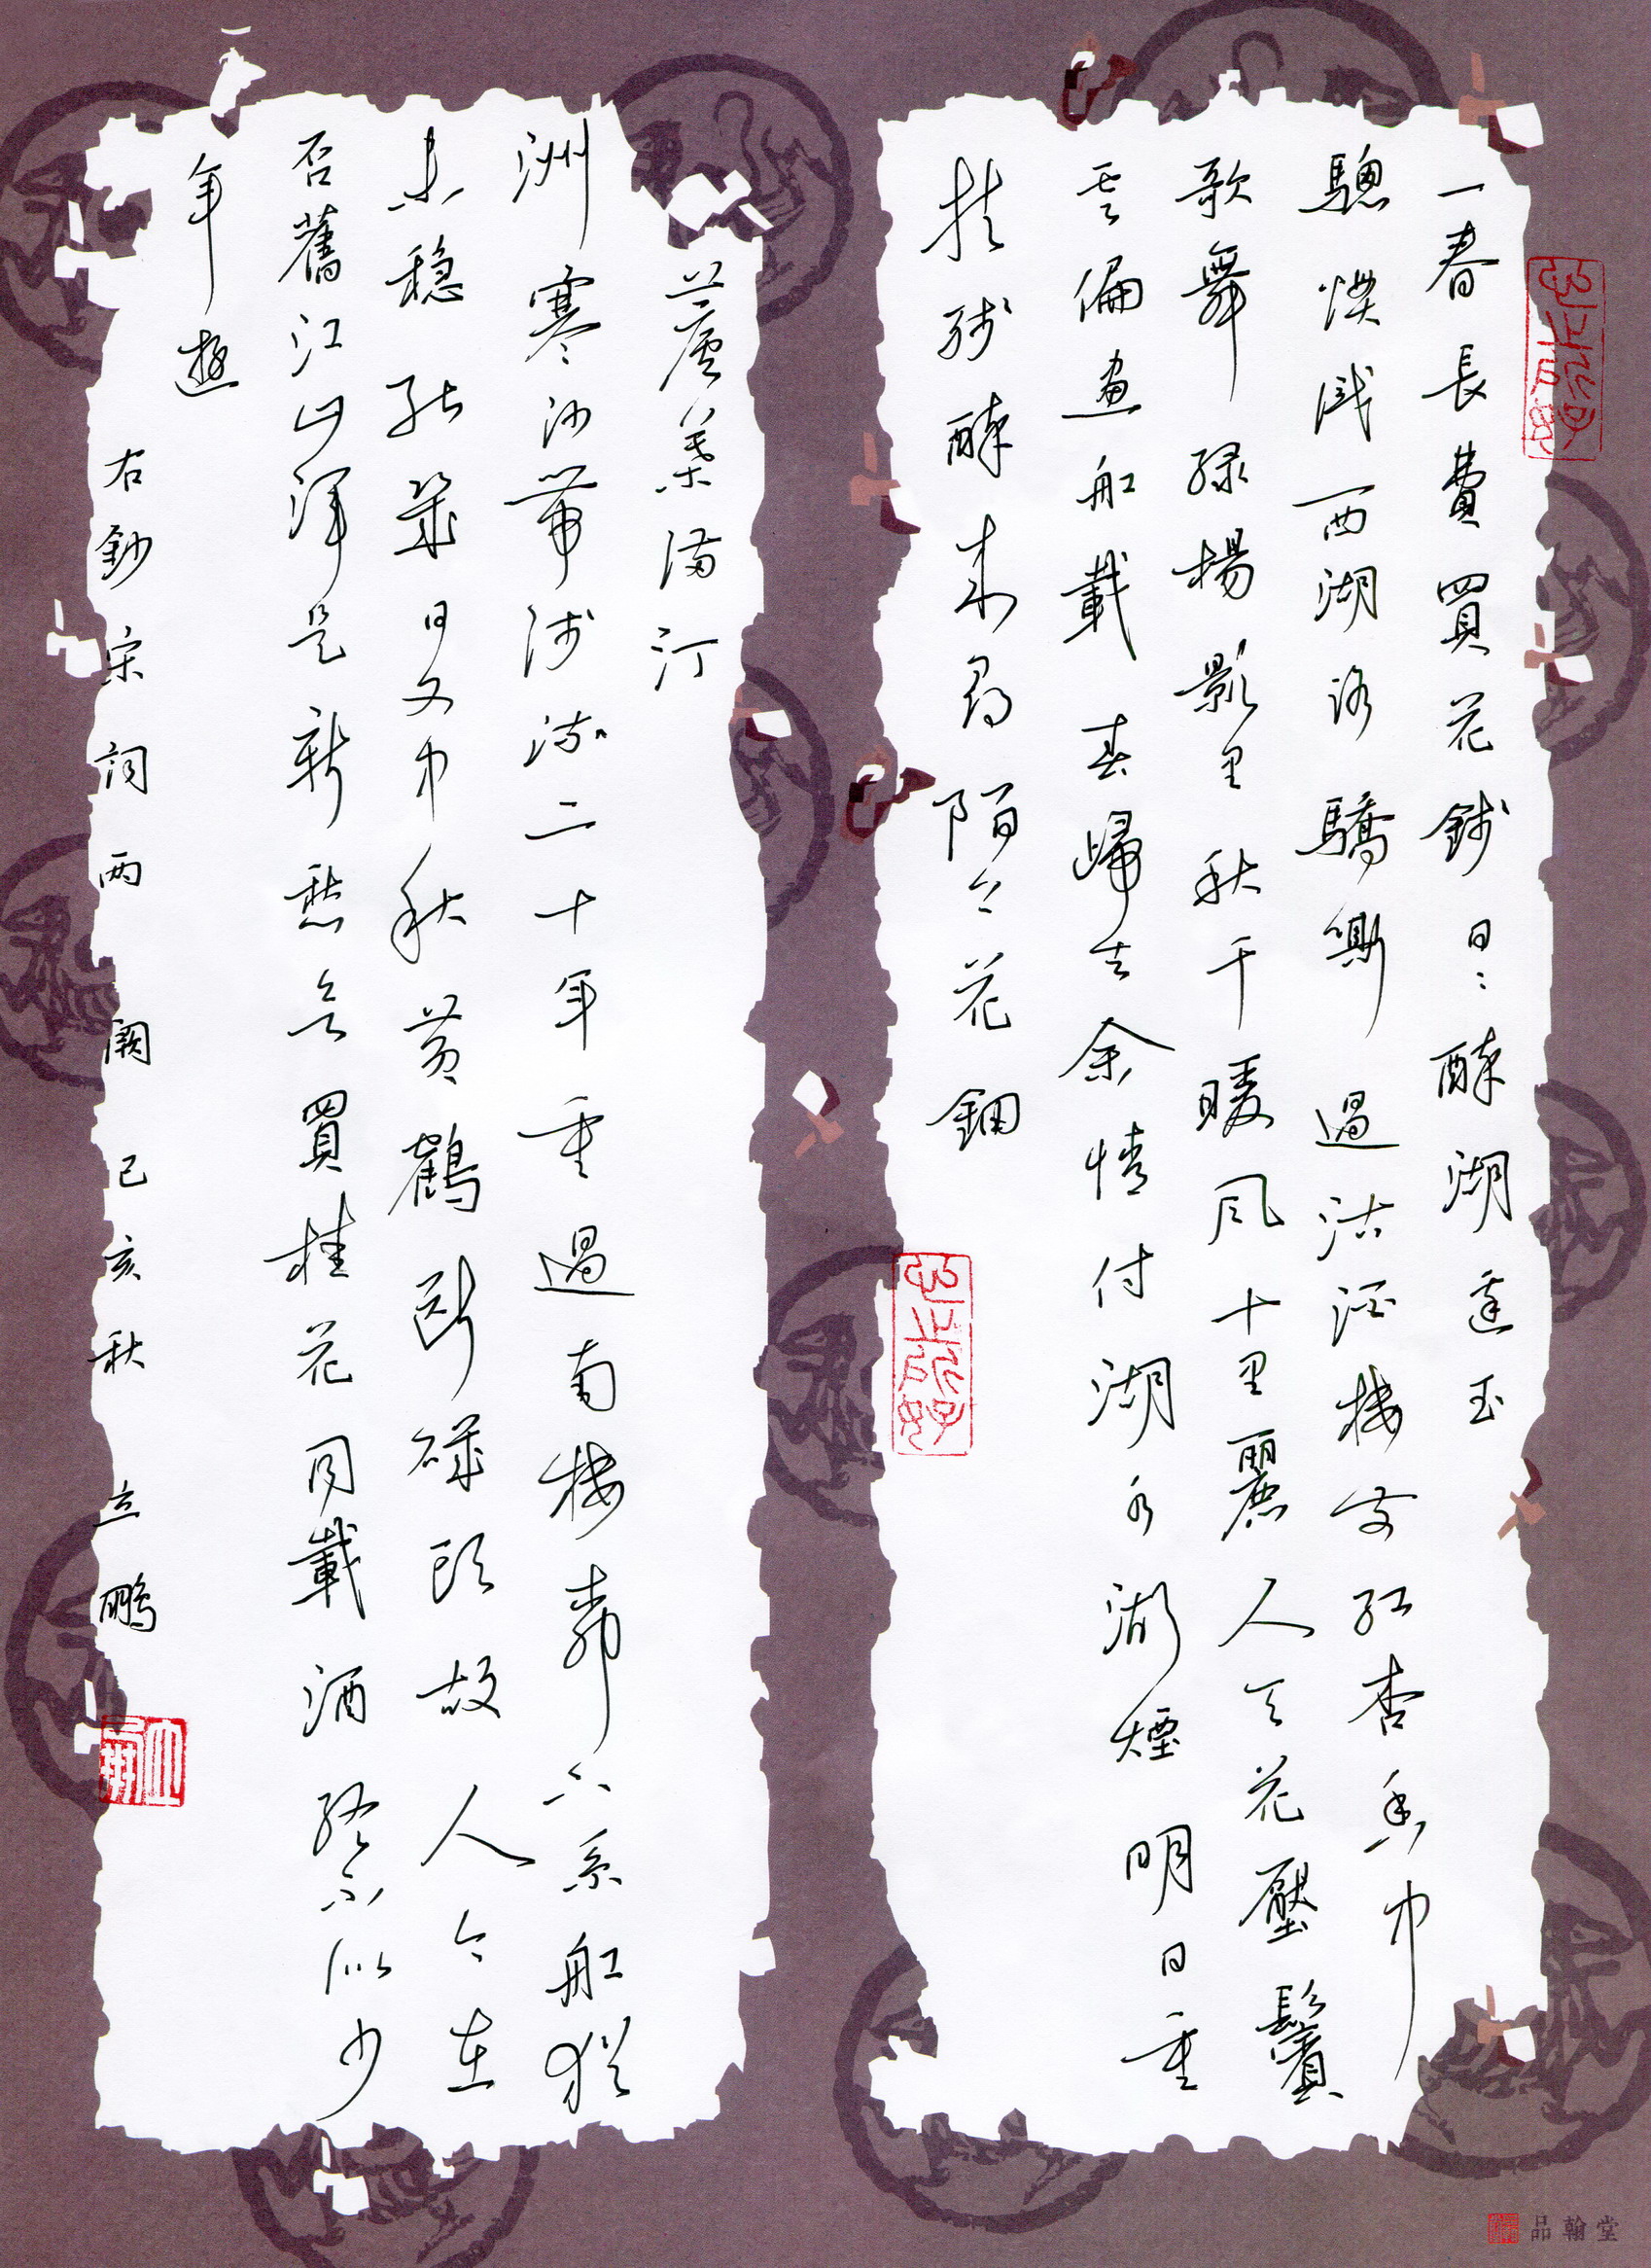 一春長費買花錢日〻醉湖邊玉
驄慣識西湖路驕嘶過沽酒樓前紅杏香中
歌舞緑楊影里秋千暖風十里麗人天花壓鬢
雲偏畫船載春歸去余情付湖水湖煙明日重
扶殘醉來尋陌上花鈿
蘆葉滿汀
洲寒沙帶淺流二十年重過南樓柳下系船猶
未穩能幾日又中秋黃鶴斷磯頭故人今在
否舊江山渾是新愁欲買桂花同載酒終不似少
年遊
右鈔宋詞兩闋己亥秋立鵬
品翰堂